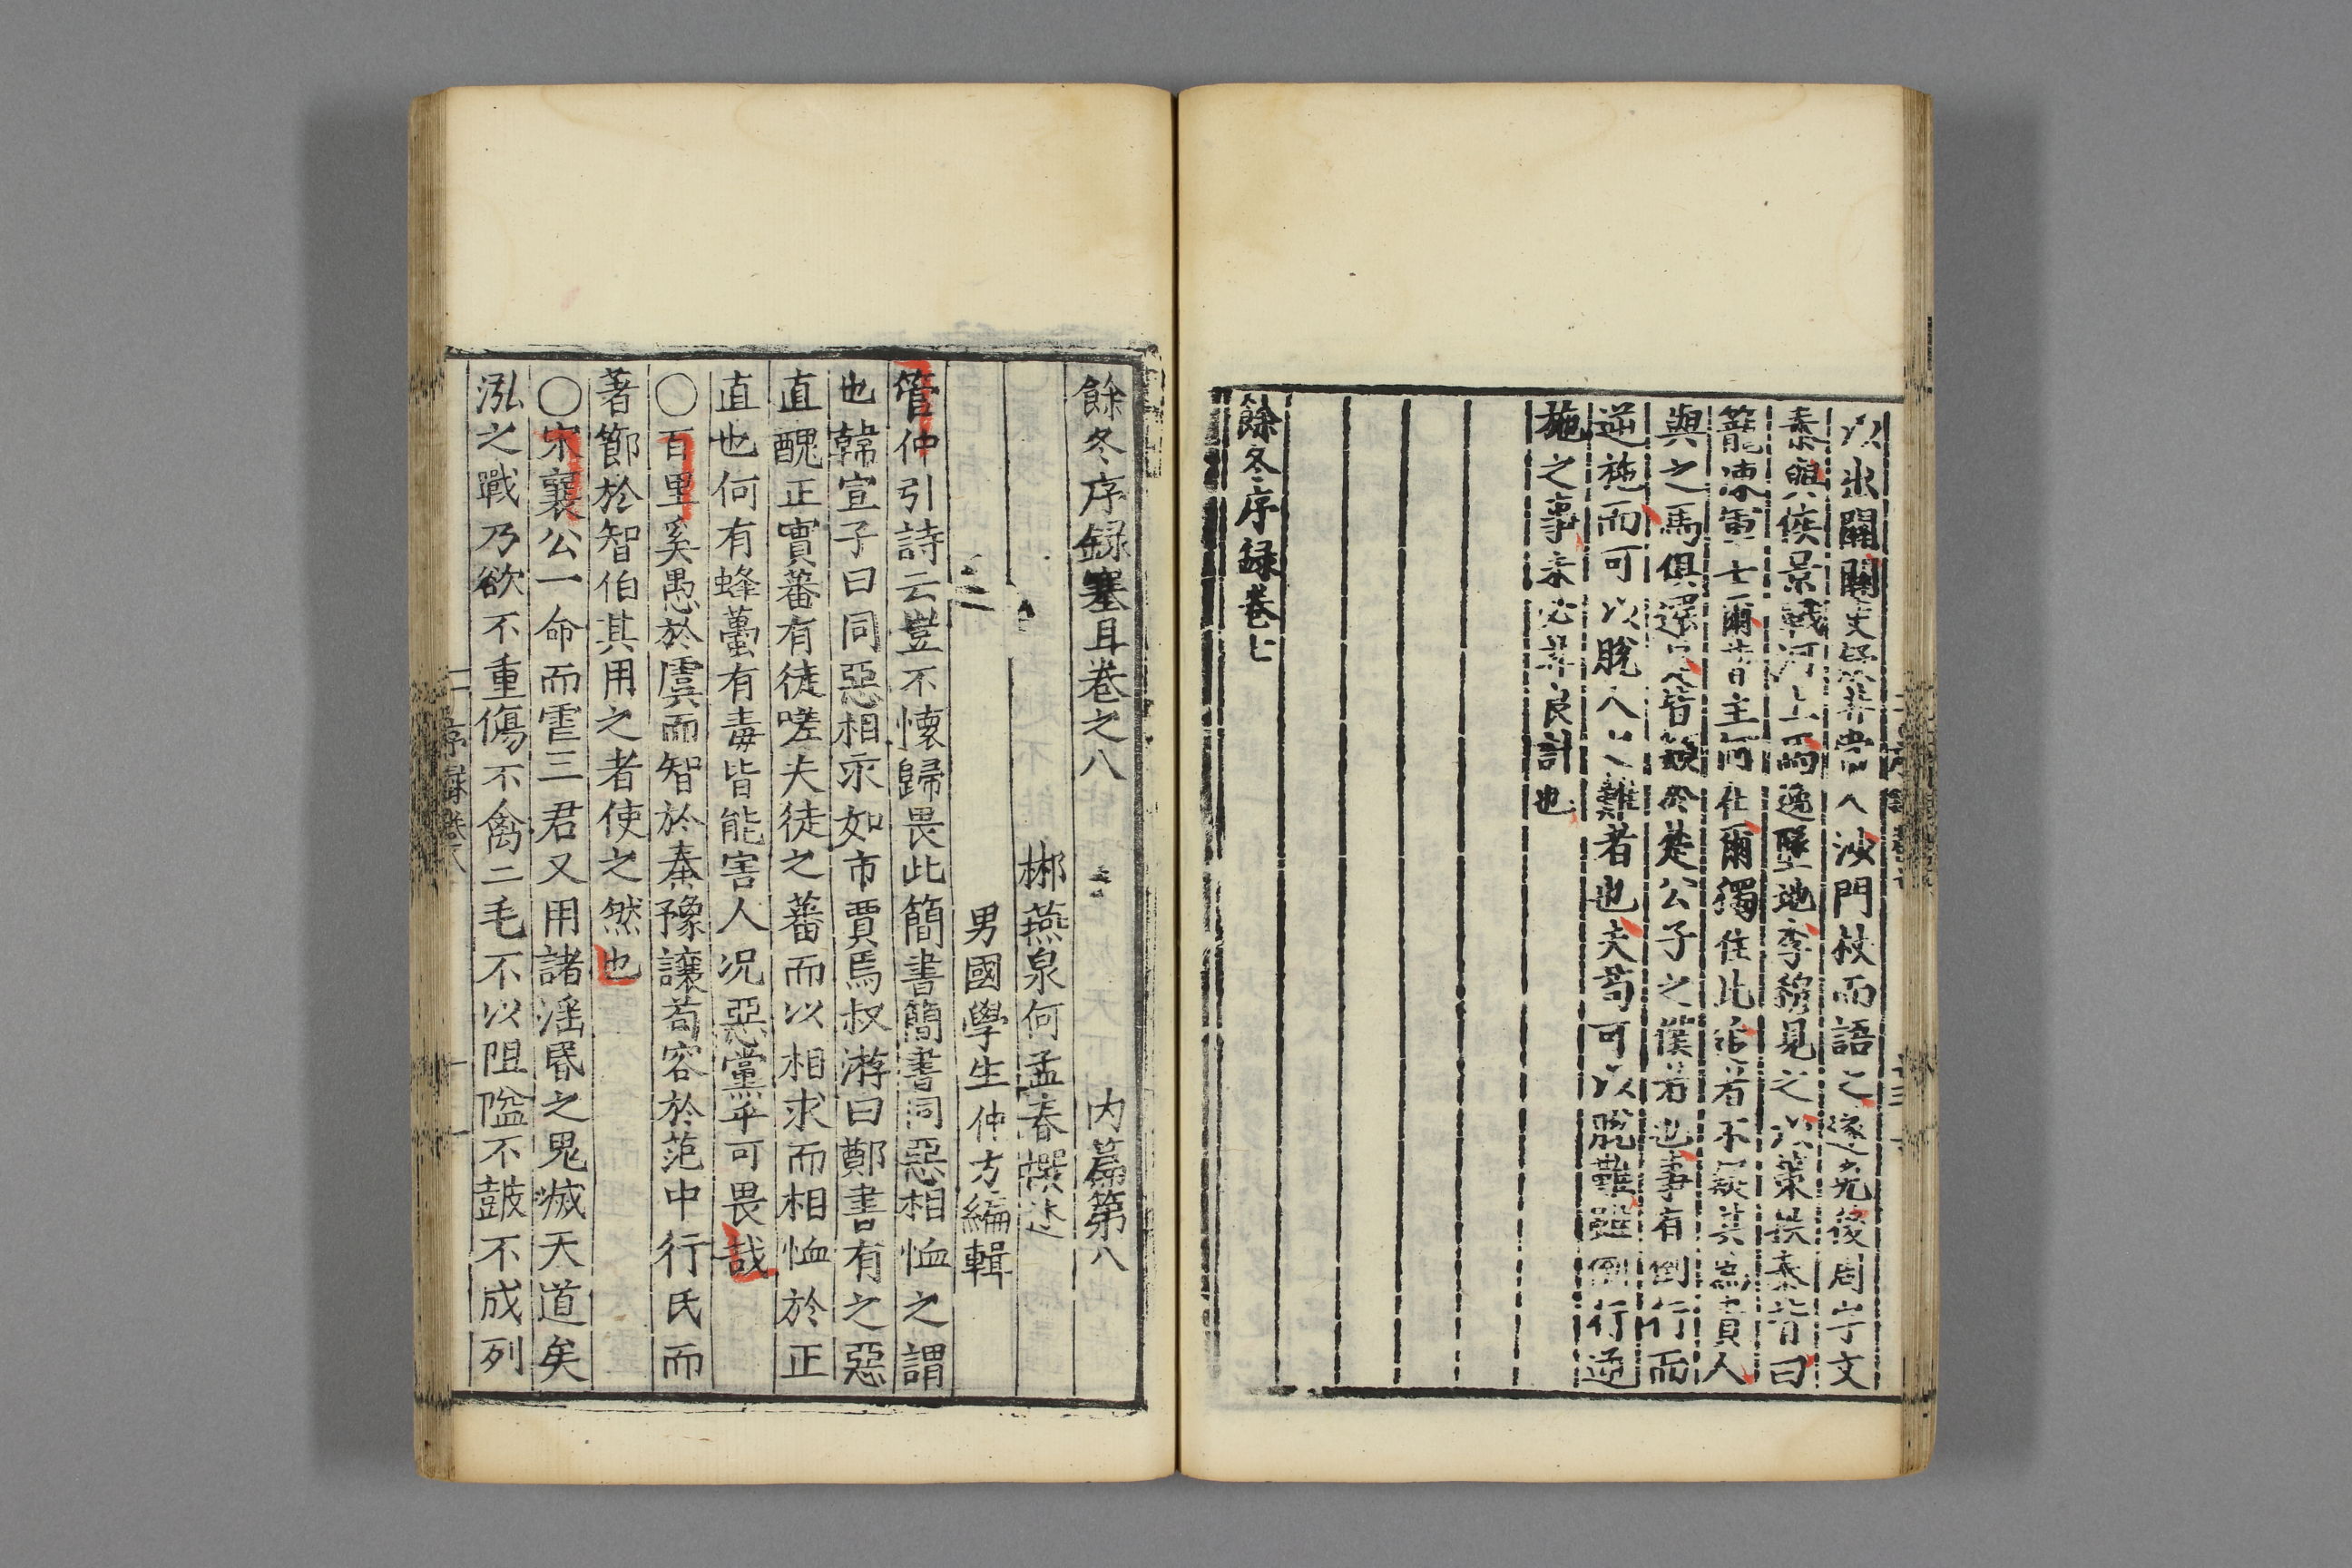 以出關關吏疑其常人沙門杖而語之遂免後周宇文
泰與侯景戰河上而逸墜地李穆見之以策抶泰背曰
籠凍軍士爾曹主何在爾獨住此追者不疑其為貴人
與之馬俱還是皆類於楚公子之僕者也事有倒行而
逆施而可以脫人之難者也夫苟可以脫難雖倒行逆
施之事未必非良計也
餘冬序録卷七
餘冬序録塞且卷之八 内篇第八
郴燕泉何孟春撰述
男國學生仲方編輯
管仲引詩云豈不懷歸畏此簡書簡書同惡相恤之謂
也韓宣子曰同惡相求如市賈焉叔游曰鄭書有之惡
直醜正實蕃有徒嗟夫徒之蕃而以相求而相恤於正
直也何有蜂蠆有毒皆能害人况惡黨乎可畏哉
〇百里奚愚於虞而智於秦豫讓苟容於范中行氏而
著節於智伯其用之者使之然也
〇宋襄公一命而霅三君又用諸淫昏之鬼滅天道矣
泓之戰乃欲不重傷不禽二毛不以阻隘不鼓不成列
序録卷八